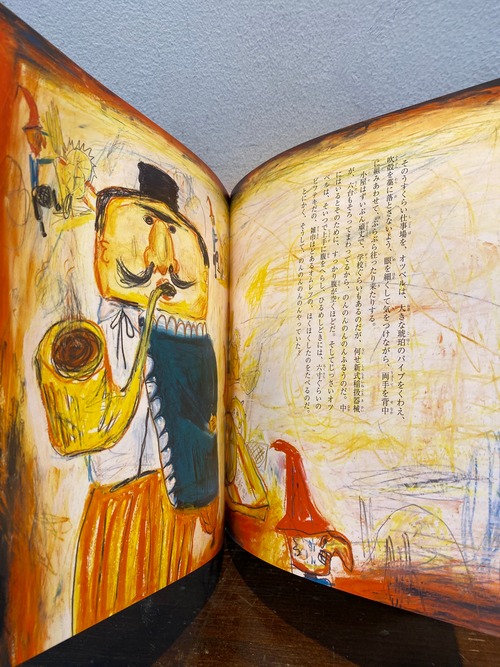 そのうすくらい仕事場を、オツベルは、大きな琥珀のパイプをくわえ、
吹殻を藁に落とさないよう、眼を細くして気をつけながら、両手を背中
に組みあわせて、ぶらぶら往ったり来たりする。
小屋はずいぶん頑丈で、学校ぐらいもあるのだが、何せ新式稲扱器械
が、六台もそろってまわってるから、のんのんのんのんふるうのだ。中
にはいるとそのために、すっかり腹が空くほどだ。そしてじっさいオツ
ベルは、そいつで上手に腹をへらし、ひるめしどきには、六寸ぐらいの
ビフテキだの、雑巾ほどあるオムレツの、ほくほくしたのをたべるのだ。
とにかく、そうして、のんのんのんのんやっていた。